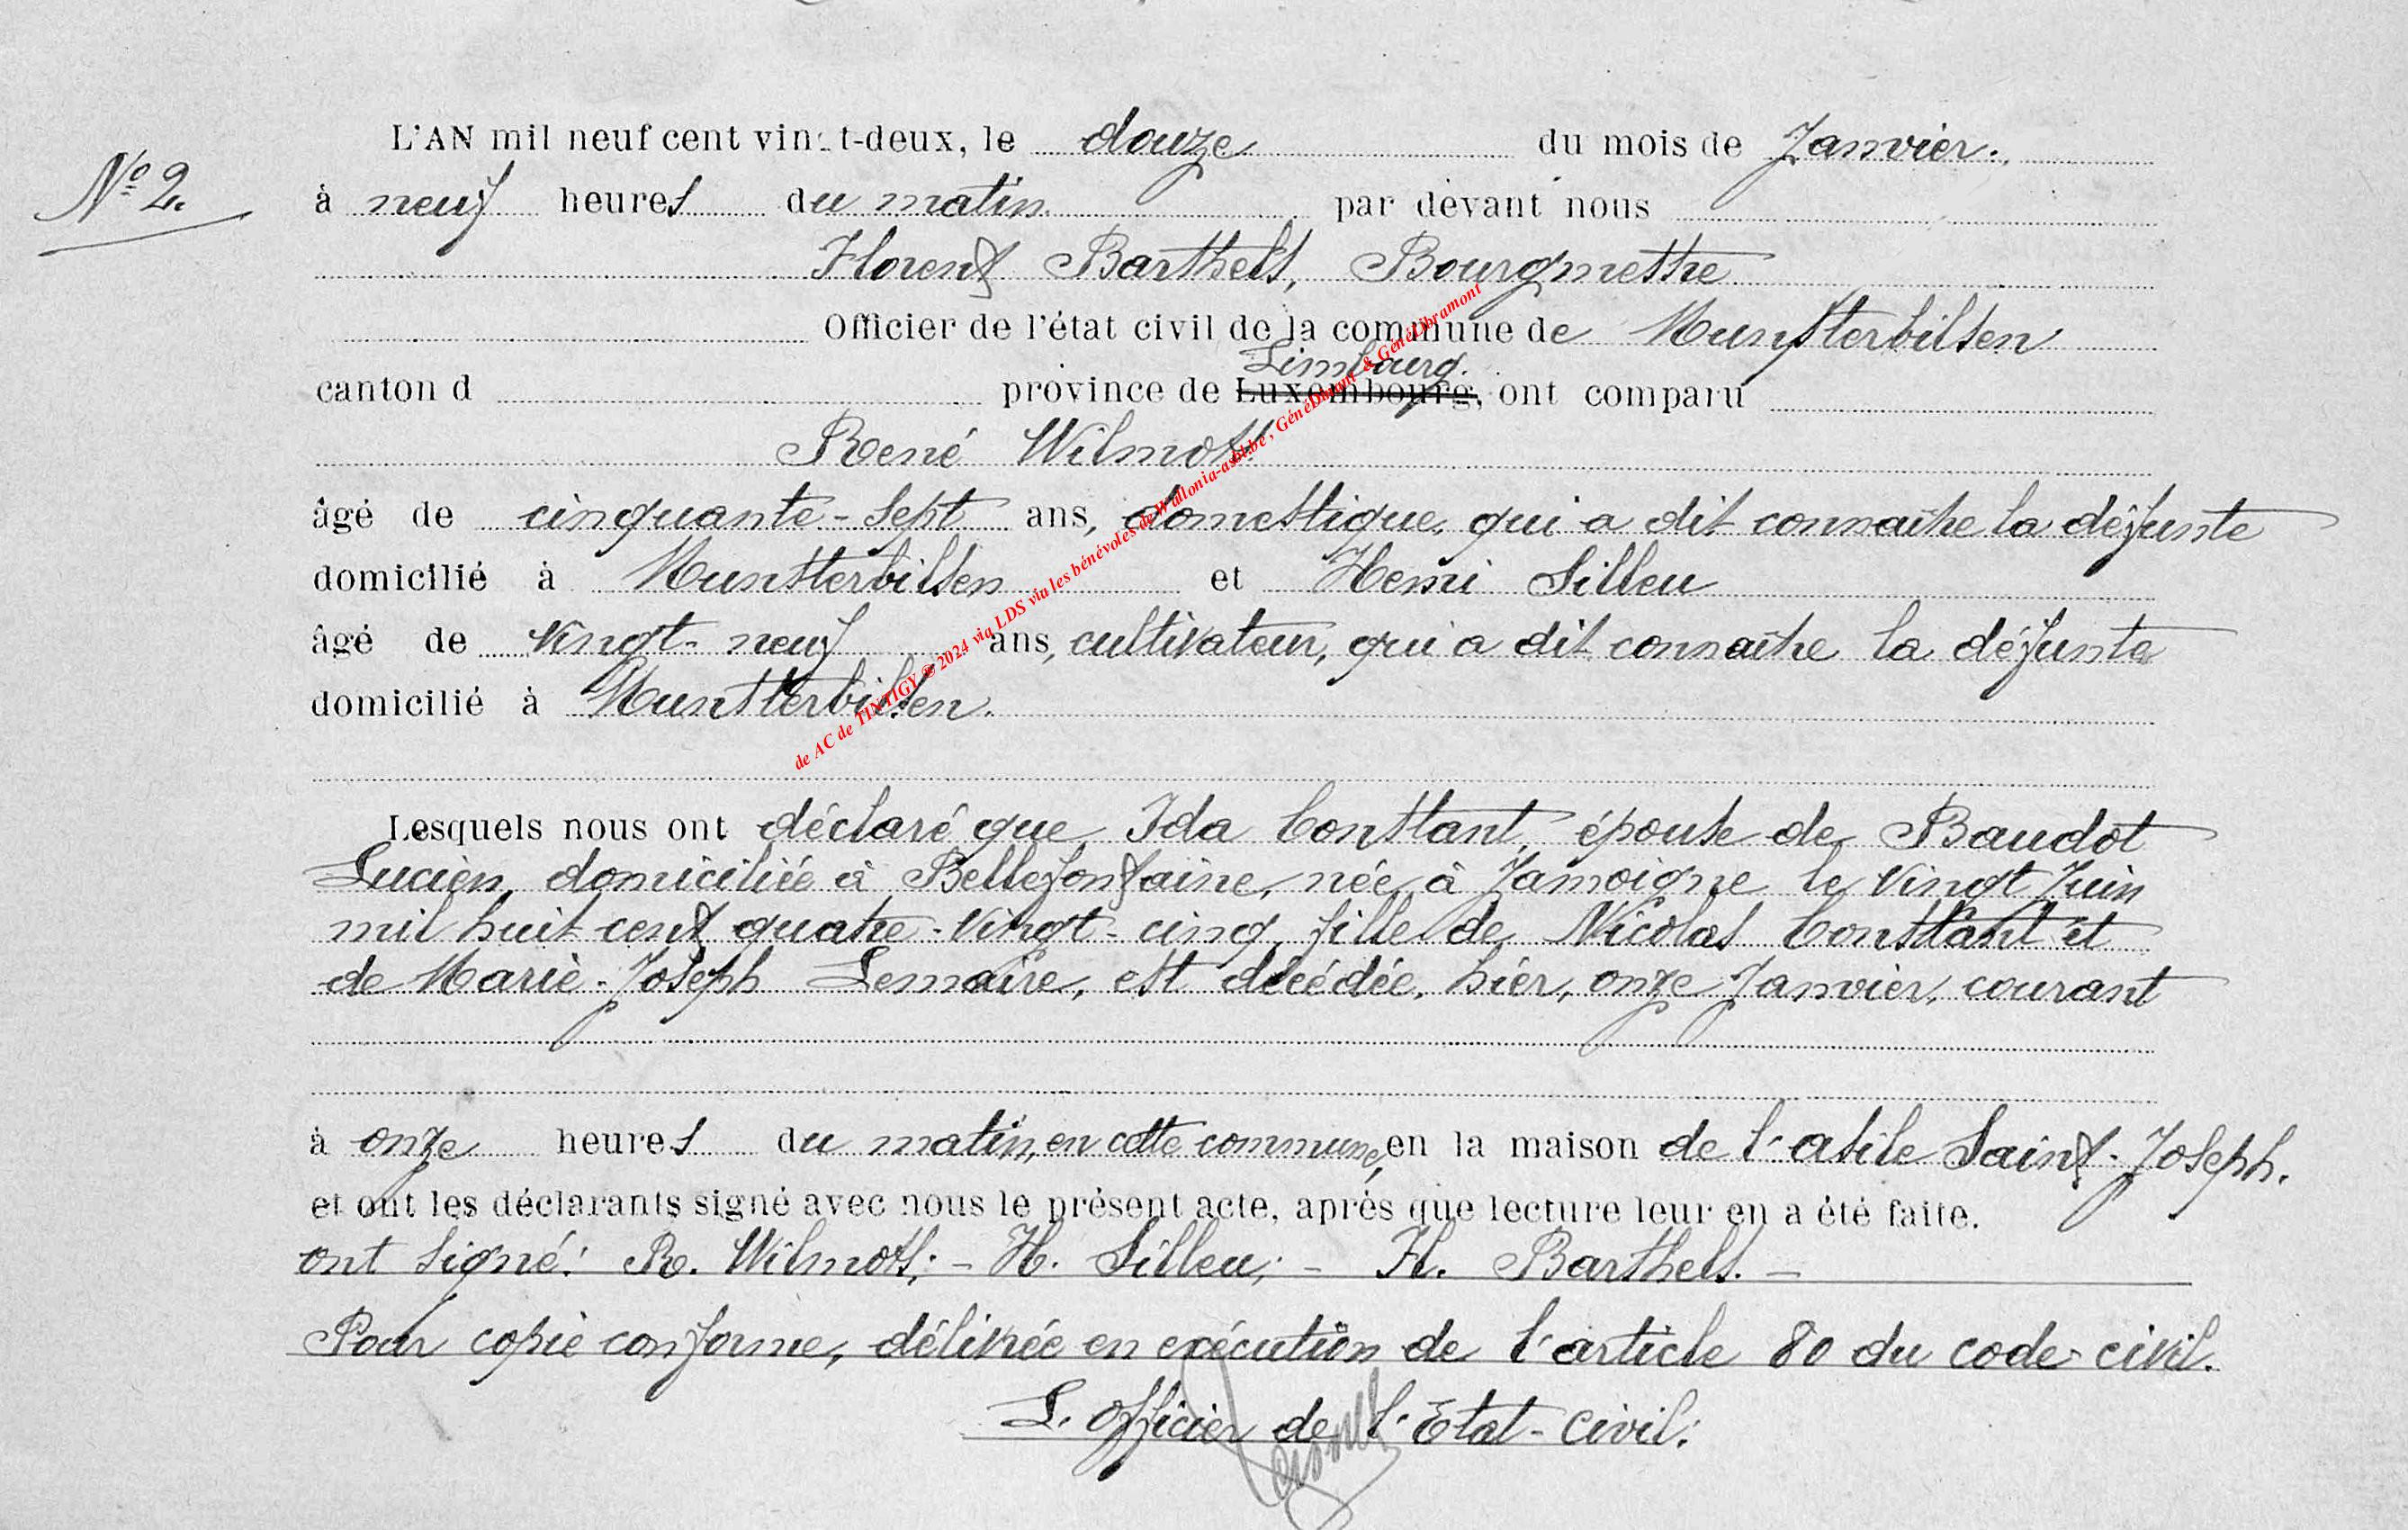 L'AN mil neuf cent vingt-deux, le douze du mois de Janvier.
N° 2.
à neuf heures du matin par devant nous
Florent Barthels, Bourgmestre
Officier de l'état civil de la commune de Munsterbilsen
Limbourg.
canton d province de Luxembourg, ont comparu
René Wilmots
âgé de cinquante-sept ans, domestique, qui a dit connaître la défunte
domicilié à Munsterbilsen et Henri Silleu
âgé de vingt-neuf ans, cultivateur, qui a dit connaître la défunte
domicilié à Munsterbilsen.
de AC de TINTIGY © 2024 via LDS via les bénévoles de Wallonia-asbl.be, GénéDinant & GénéLibramont
Lesquels nous ont déclaré que Ida Constant, épouse de Baudot
Lucien, domiciliée à Bellefontaine, née à Jamoigne le vingt Juin
mil huit cent quatre-vingt-cinq, fille de Nicolas Constant et
de Marie-Joseph Lemaire, est décédée, hier, onze Janvier, courant
à onze heures du matin, en cette commune, en la maison de l'asile Saint-Joseph.
et ont les déclarants signé avec nous le présent acte, après que lecture leur en a été faite.
ont signé: R. Wilmots; - H. Silleu; - Fl. Barthels. -
Pour copie conforme, délivrée en exécution de l'article 80 du code civil.
L'officier de l'Etat-Civil: